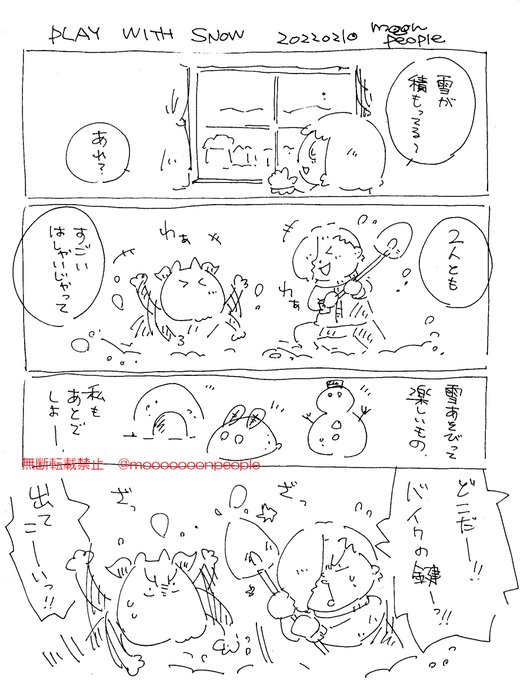 PLAY WITH SNOW 20220210 moon people
雪が
積もってる〜
あれ?
2人とも
わぁ
わぁ
すごい
はしゃいじゃって
雪あそびって
楽しいもの
私も
あとで
しよー!
無断転載禁止 @mooooooonpeople
どこだー!!
バイクの鍵ーっ!!
ざっ
ざっ
出て
こーいっ!!